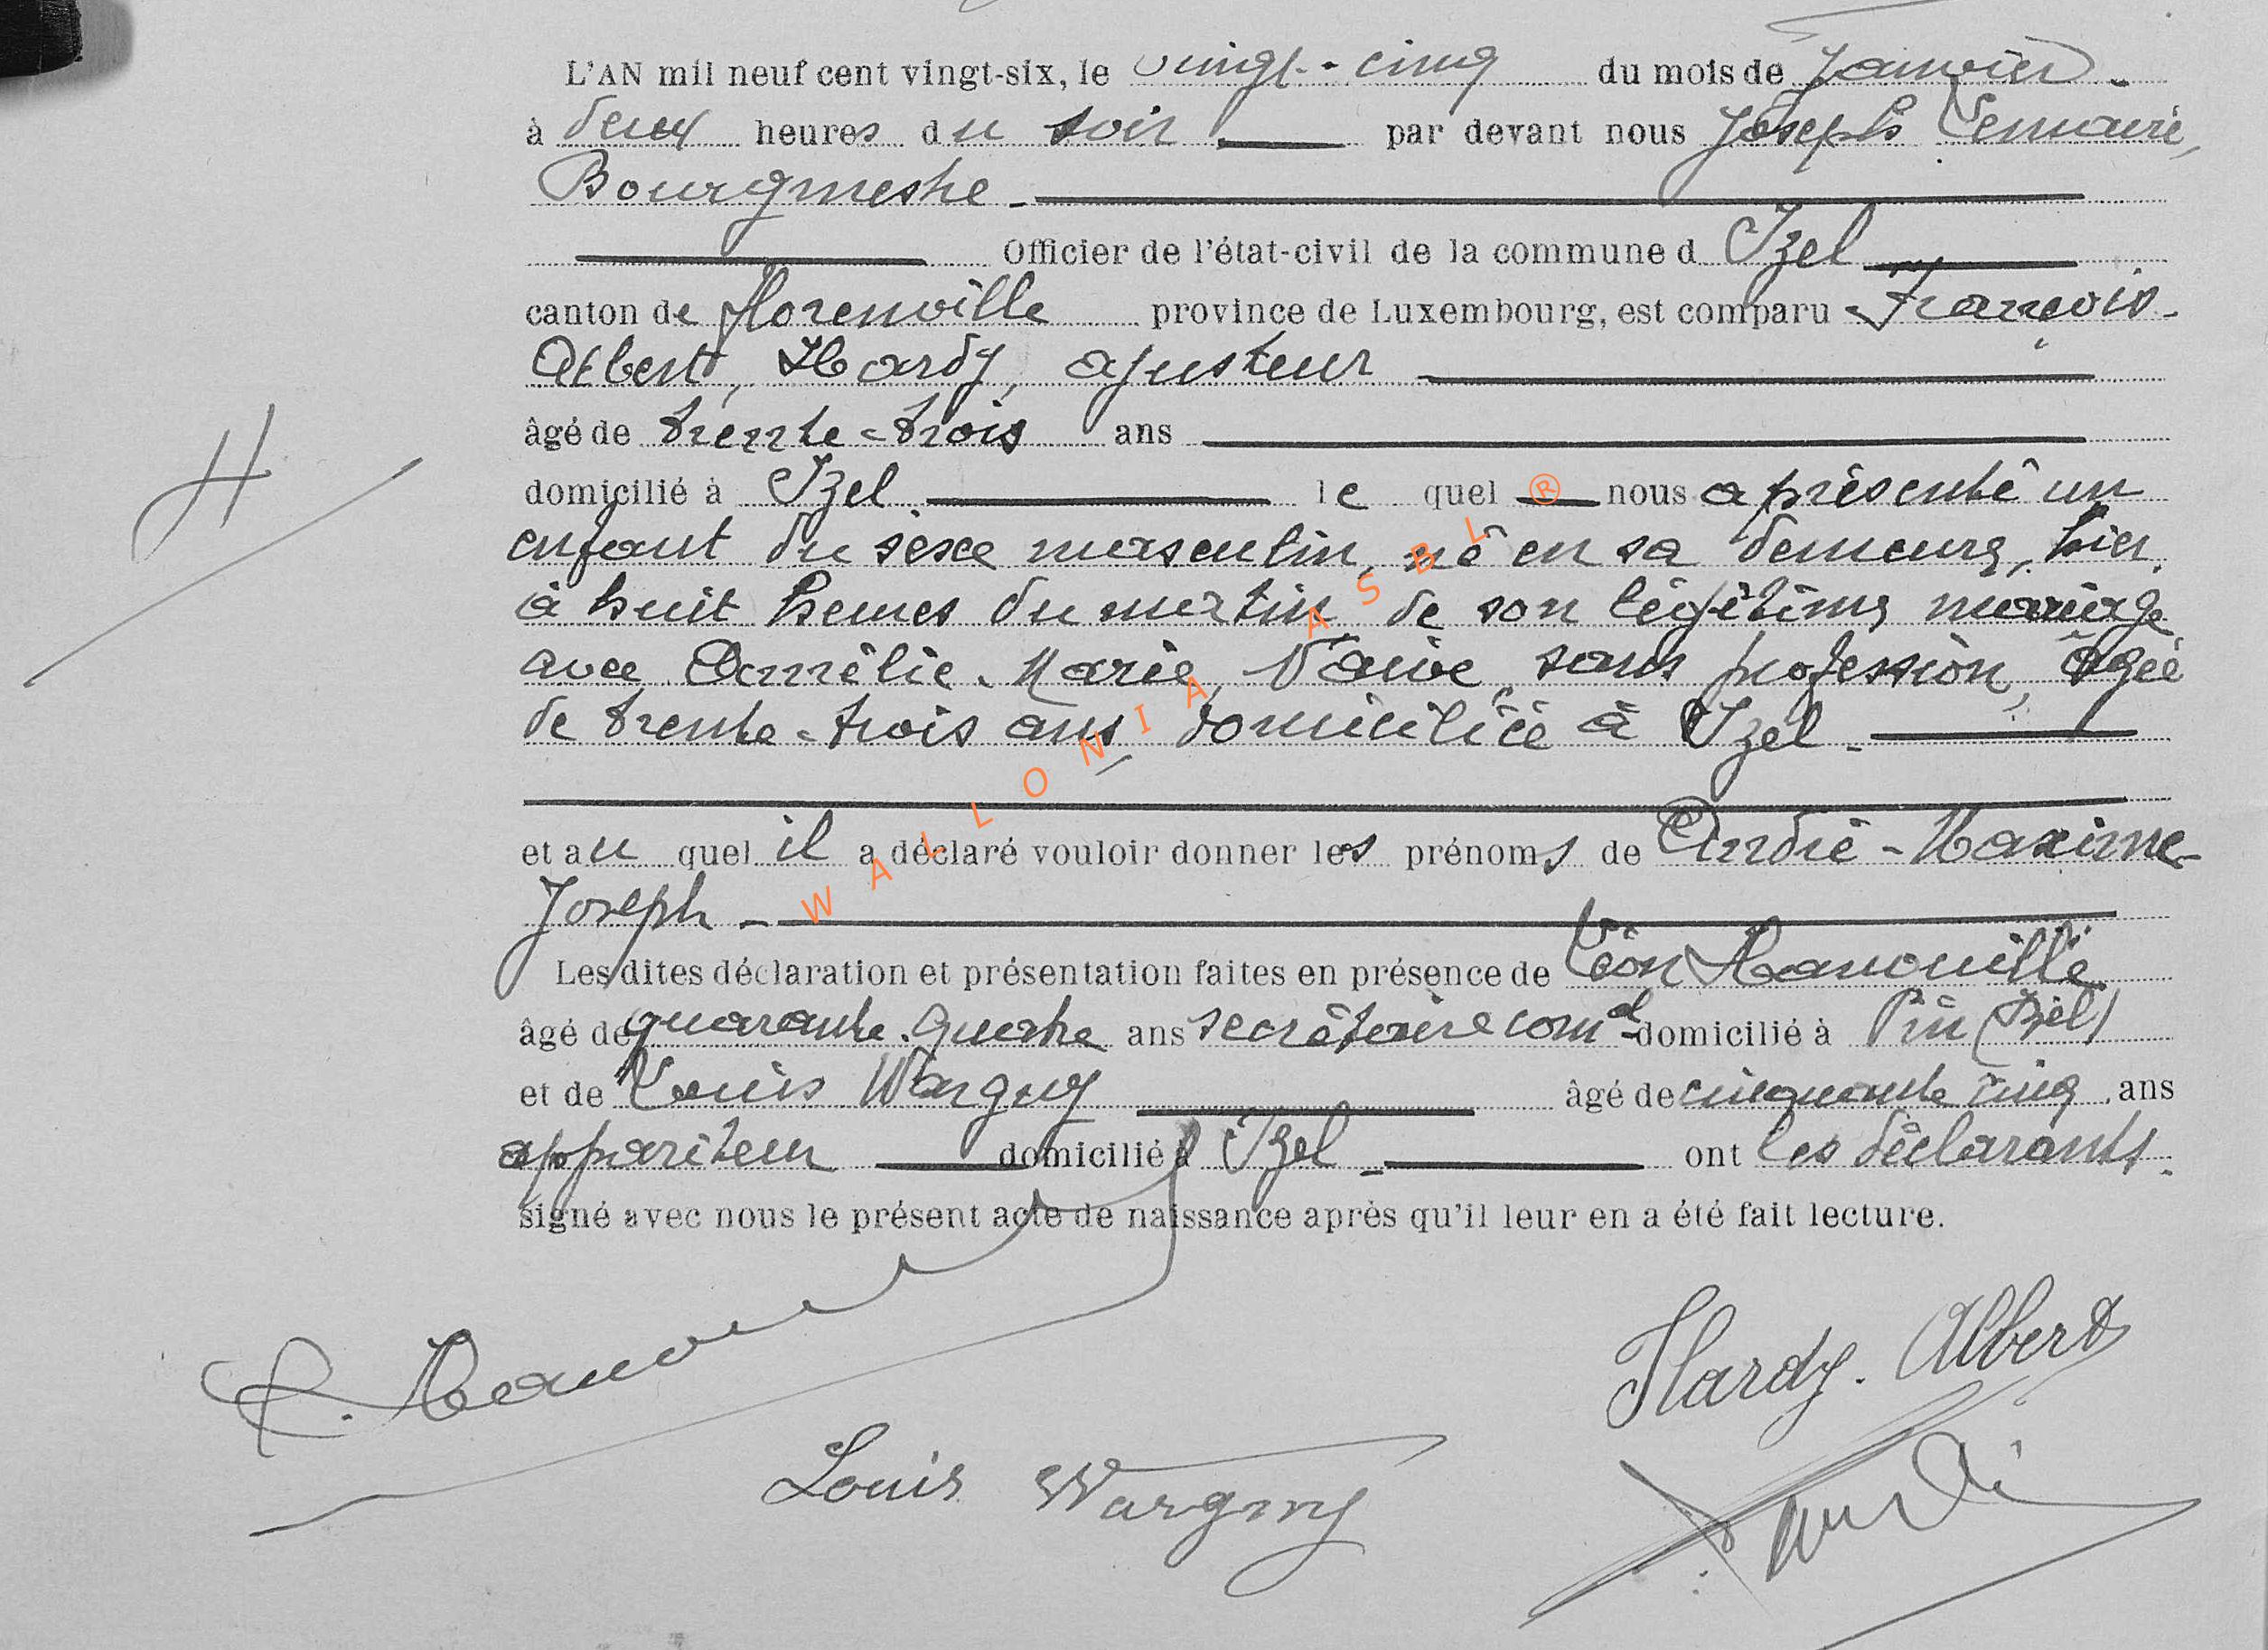 L'AN mil neuf cent vingt-six, le vingt-cinq du mois de Janvier
à deux heures du soir par devant nous Joseph Lemaire,
Bourgmestre
Officier de l'état-civil de la commune d Izel
canton de Florenville province de Luxembourg, est comparu François-
Albert, Hardy, ajusteur
âgé de trente-trois ans
domicilié à Izel lequel nous a présenté un
enfant du sexe masculin, né en sa demeure, hier
à huit heures du matin, de son légitime mariage
avec Amélie-Marie, sans profession, âgée
de trente-trois ans, domiciliée à Izel.
et au quel il a déclaré vouloir donner les prénoms de André-Maxime-
Joseph
Les dites déclaration et présentation faites en présence de Léon
âgé de quarante-quatre ans secrétaire comal domicilié à Pin (Izel)
et de Louis Wargny âgé de cinquante cinq ans
appariteur domicilié à Izel ont les déclarants
signé avec nous le présent acte de naissance après qu'il leur en a été fait lecture.
H
WALLONIA ASBL ®
Hardy. Albert
Louis Wargny